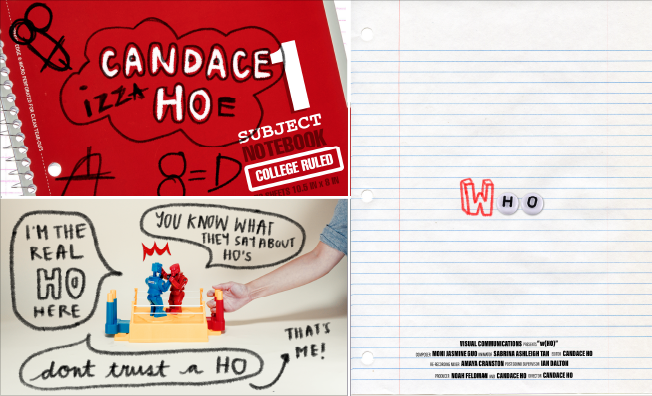 CANDACE
izzA HOE
1
SUBJECT
NOTEBOOK
COLLEGE RULED
8=D
I'M THE
REAL
HO
HERE
YOU KNOW WHAT
THEY SAY ABOUT
HO'S
dont trust a HO
THAT'S
ME!
WHO
VISUAL COMMUNICATIONS PRESENTS "W(HO)"
COMPOSER MONI JASMINE GUO ANIMATOR SABRINA ASHLEIGH TAN EDITOR CANDACE HO
RE-RECORDING MIXER AMAYA CRANSTON POST-SOUND SUPERVISOR IAN DALTON
PRODUCER NOAH FELDMAN AND CANDACE HO DIRECTOR CANDACE HO